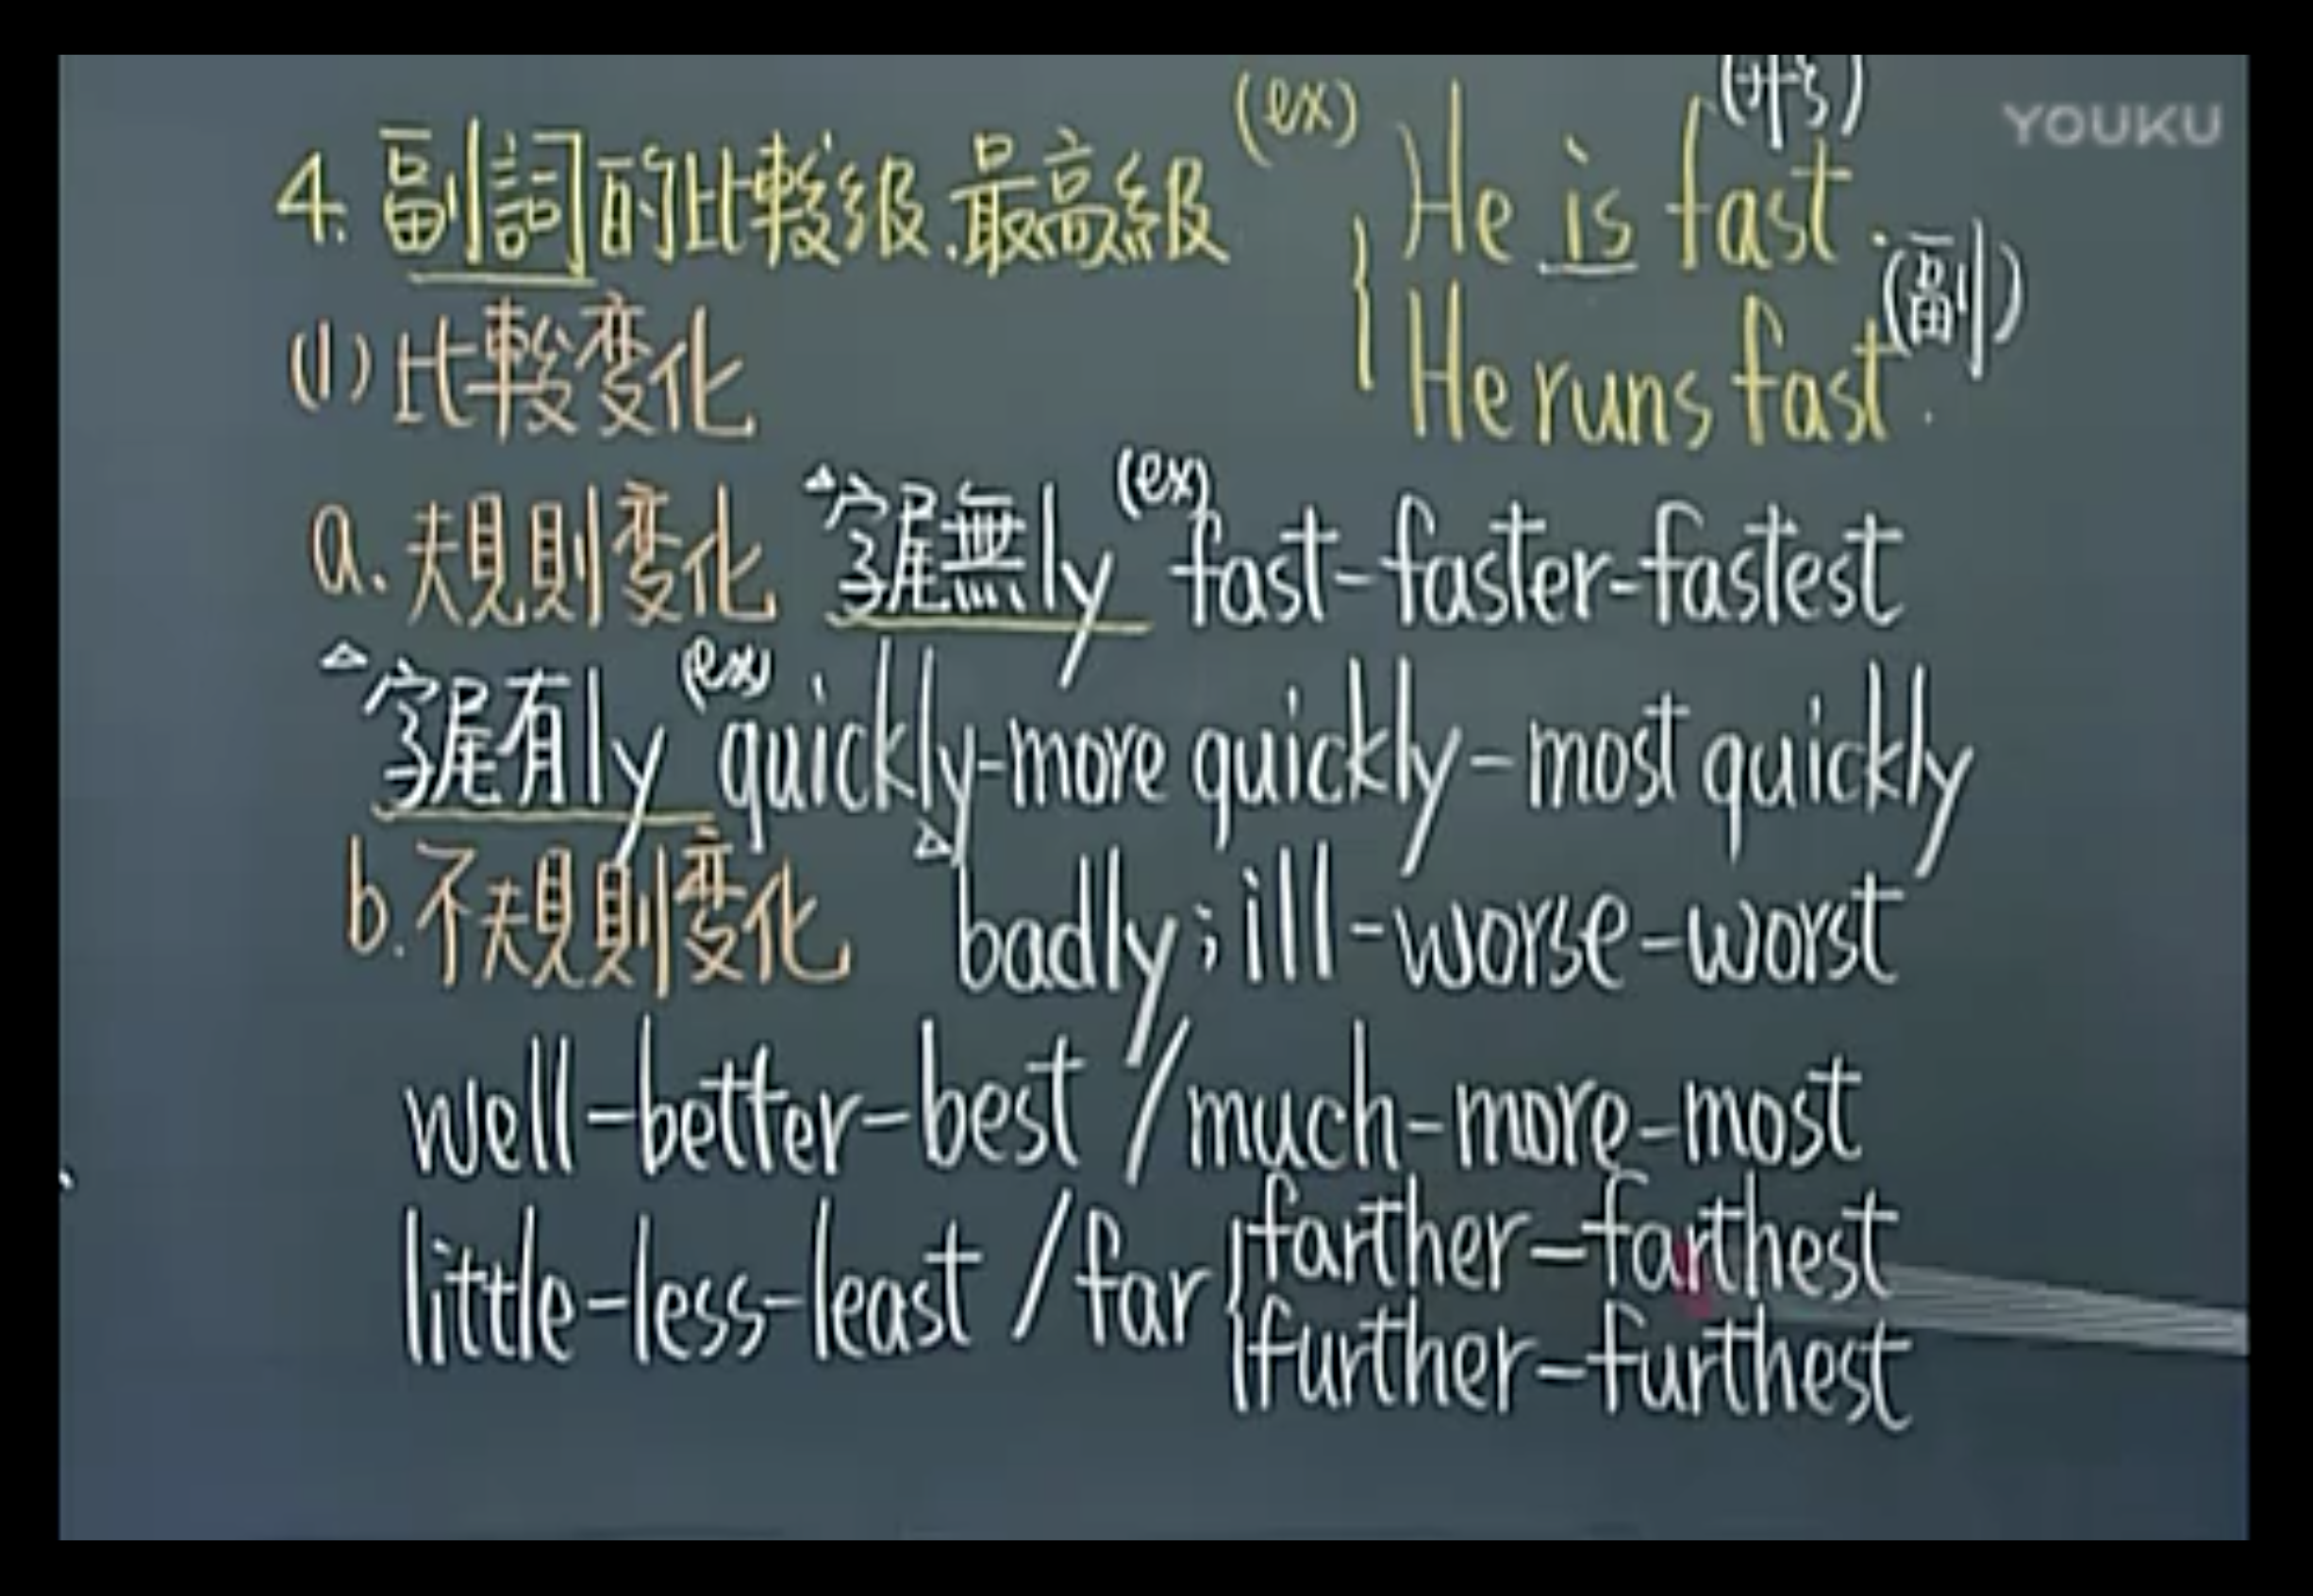 (ex) (形)
YOUKU
4. 副詞的比較級.最高級 He is fast.
(副)
(1) 比較变化 He runs fast.
a. 規則变化 △字尾無ly (ex) fast-faster-fastest
△字尾有ly (ex) quickly-more quickly-most quickly
b. 不規則变化 △badly;ill-worse-worst
well-better-best / much-more-most
little-less-least / far { farther-farthest
further-furthest